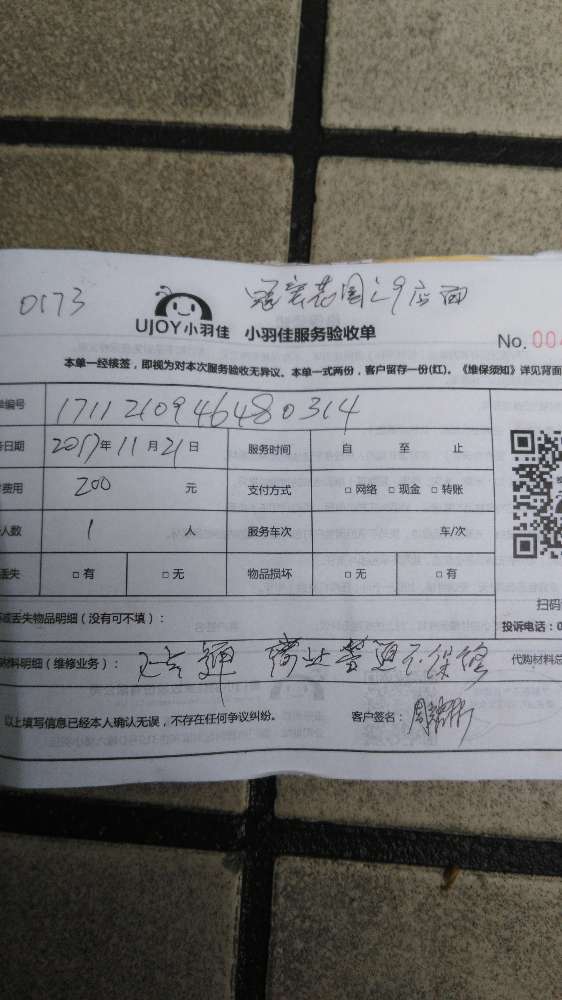 0173
UJOY小羽佳 小羽佳服务验收单
No. 004
本单一经核签，即视为对本次服务验收无异议。本单一式两份，客户留存一份(红)。《维保须知》详见背面
编号 1711210946480314
日期 2017年11月21日 服务时间 自 至 止
费用 200 元 支付方式 □ 网络 □ 现金 □ 转账
人数 1 人 服务车次 车/次
丢失 □ 有 □ 无 物品损坏 □ 无 □ 有
或丢失物品明细（没有可不填）：
扫码
投诉电话：0
材料明细（维修业务）： 不保修 代购材料总
以上填写信息已经本人确认无误，不存在任何争议纠纷。 客户签名：